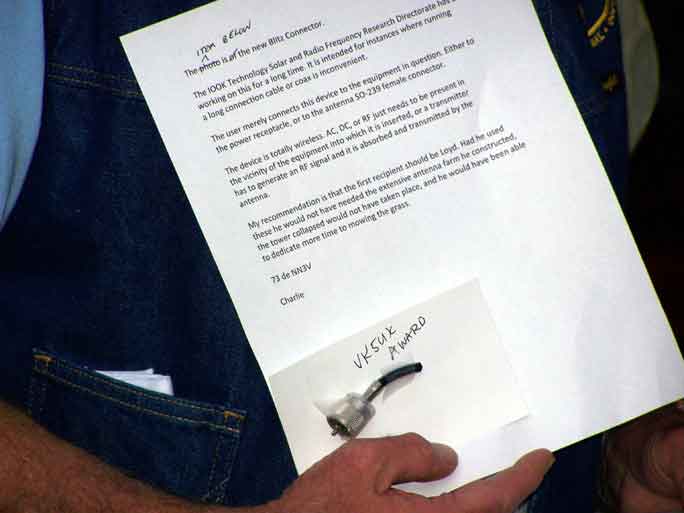 ITEM BELOW
The photo is of the new Blitz Connector.
The IOOK Technology Solar and Radio Frequency Research Directorate has
working on this for a long time. It is intended for instances where running
a long connection cable or coax is inconvenient.
The user merely connects this device to the equipment in question. Either to
the power receptacle, or to the antenna SO-239 female connector.
The device is totally wireless. AC, DC, or RF just needs to be present in
the vicinity of the equipment into which it is inserted, or a transmitter
has to generate an RF signal and it is absorbed and transmitted by the
antenna.
My recommendation is that the first recipient should be Loyd. Had he used
these he would not have needed the extensive antenna farm he constructed,
the tower collapsed would not have taken place, and he would have been able
to dedicate more time to mowing the grass.
73 de NN3V
Charlie
VK5UX
AWARD